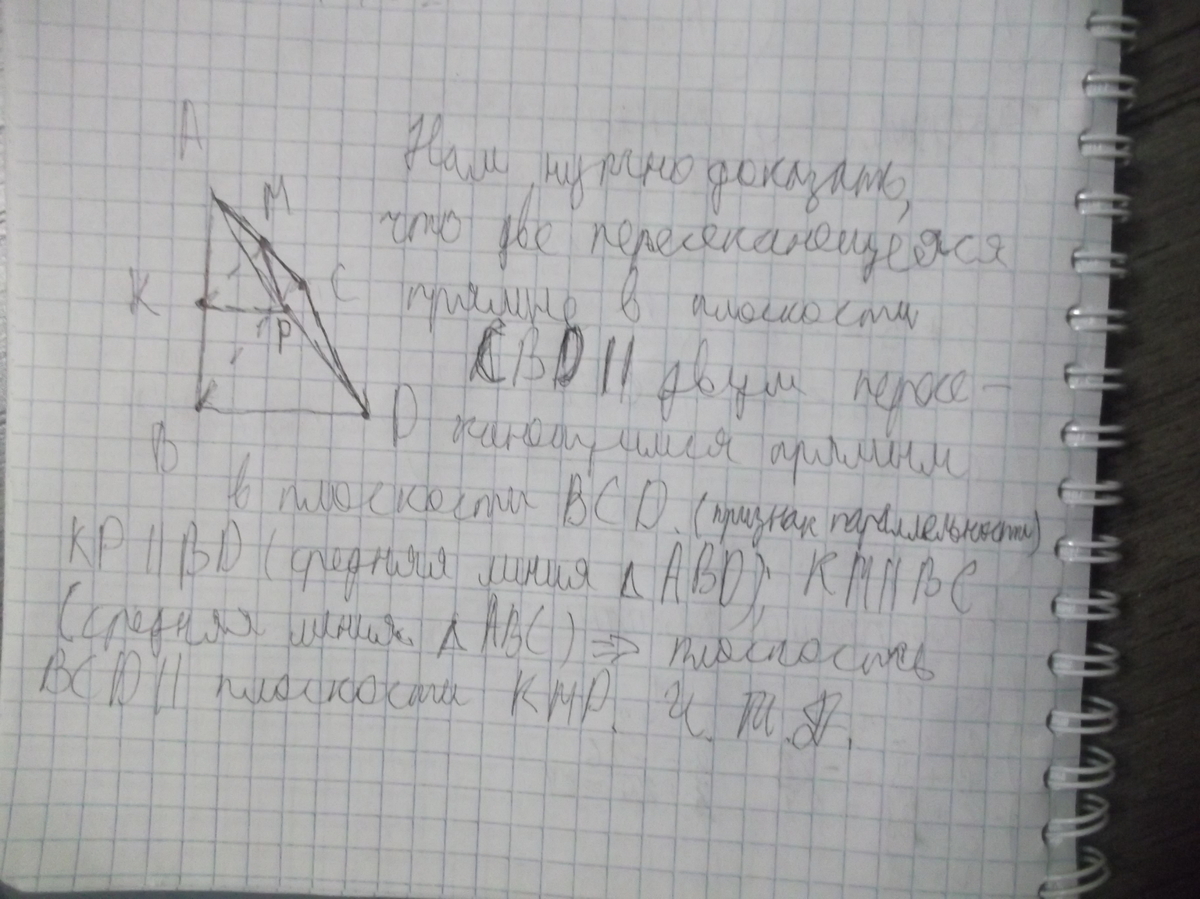 A
M
K
C
P
B
D
Нам нужно доказать,
что две пересекающиеяся
прямые в плоскости
CBD || двум пересе-
кающимся прямым
в плоскости BCD. (признак параллельности)
KP || BD (средняя линия Δ ABD); KM || BC
(средняя линия Δ ABC) ⇒ плоскость
BCD || плоскости KMP. Ч. Т. Д.